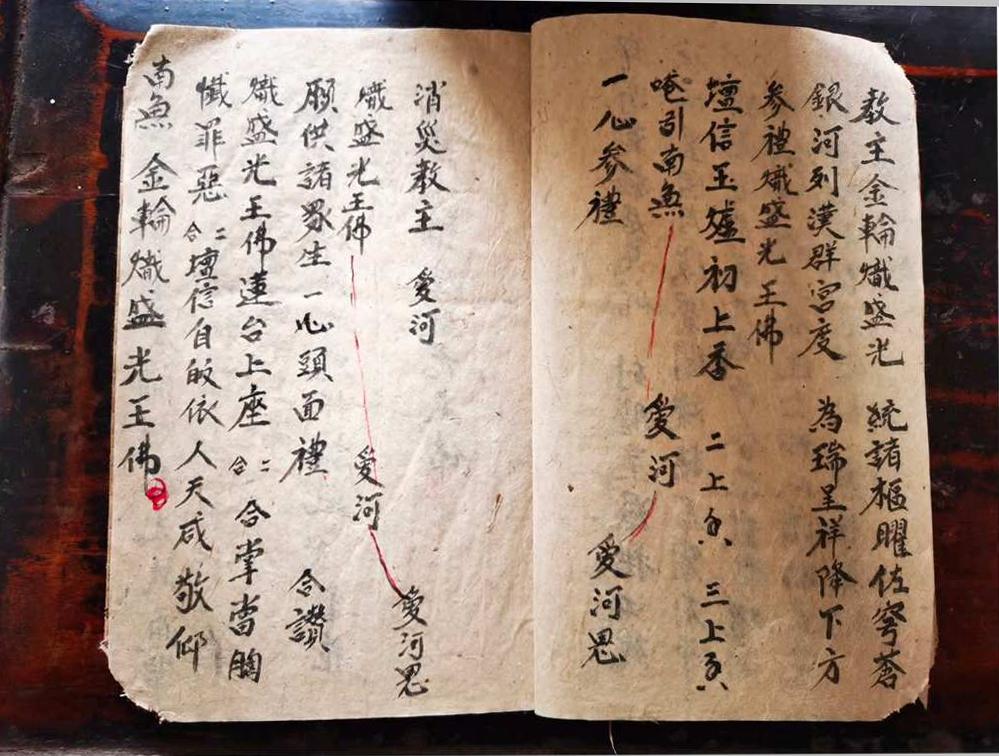 教主金輪熾盛光 統諸樞曜佐穹蒼
銀河列漢群宮度 為瑞呈祥降下方
參禮熾盛光王佛
壇信玉爐初上香 二上香 三上香
唵引南無 愛河
一心參禮 愛河
消災教主 愛河 愛河
熾盛光王佛 愛河
願供諸眾生 一心頭面禮 合讚
熾盛光王佛蓮台上座 二合 合掌當胸
懺罪惡 二合 壇信自皈依人天咸敬仰
南無 金輪熾盛光王佛